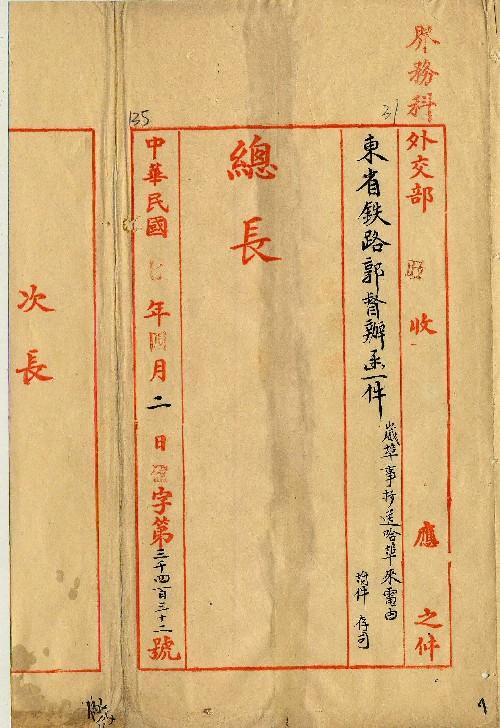 界務科
31
外交部 收 應 之件
東省鉄路郭督辦函一件
崴埠事抄送哈埠來電由
附件存司
總長
135
中華民國七年四月二日 字第三千四百三十二號
次長